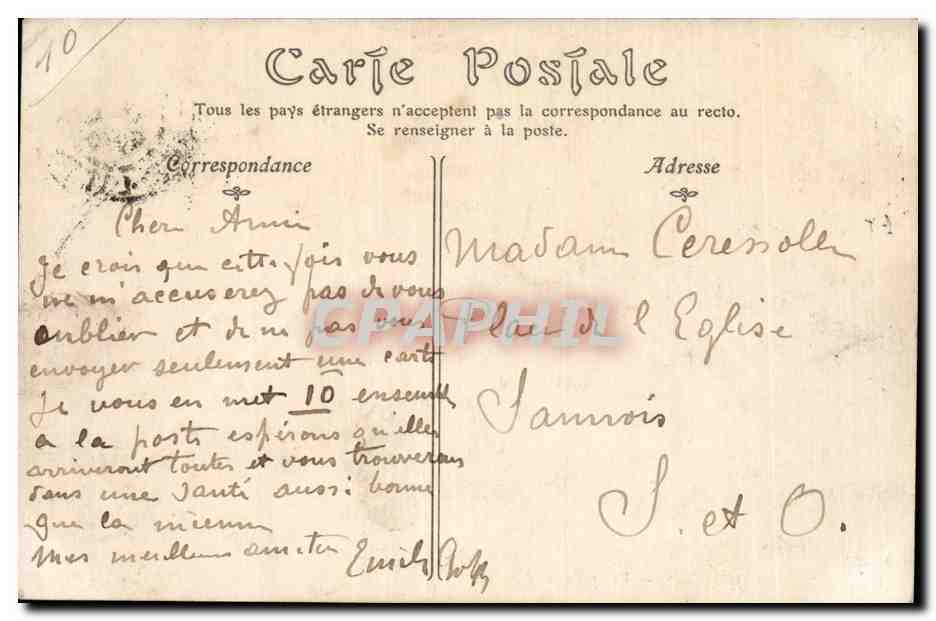 10
Carte Postale
Tous les pays étrangers n'acceptent pas la correspondance au recto.
Se renseigner à la poste.
Correspondance
Cher Amie
Je crois que cette fois vous
ne m'accuserez pas de vous
oublier et de ne pas vous
envoyer seulement une carte
Je vous en met 10 ensemble
a la poste espérons qu'elles
arriveront toutes et vous trouverons
dans une santé aussi bonne
que la mienne
Mes meilleurs amitiés Emile
Adresse
Madame Ceressolle
Place de l Eglise
Sannois
S. et O.
CPAPHIL